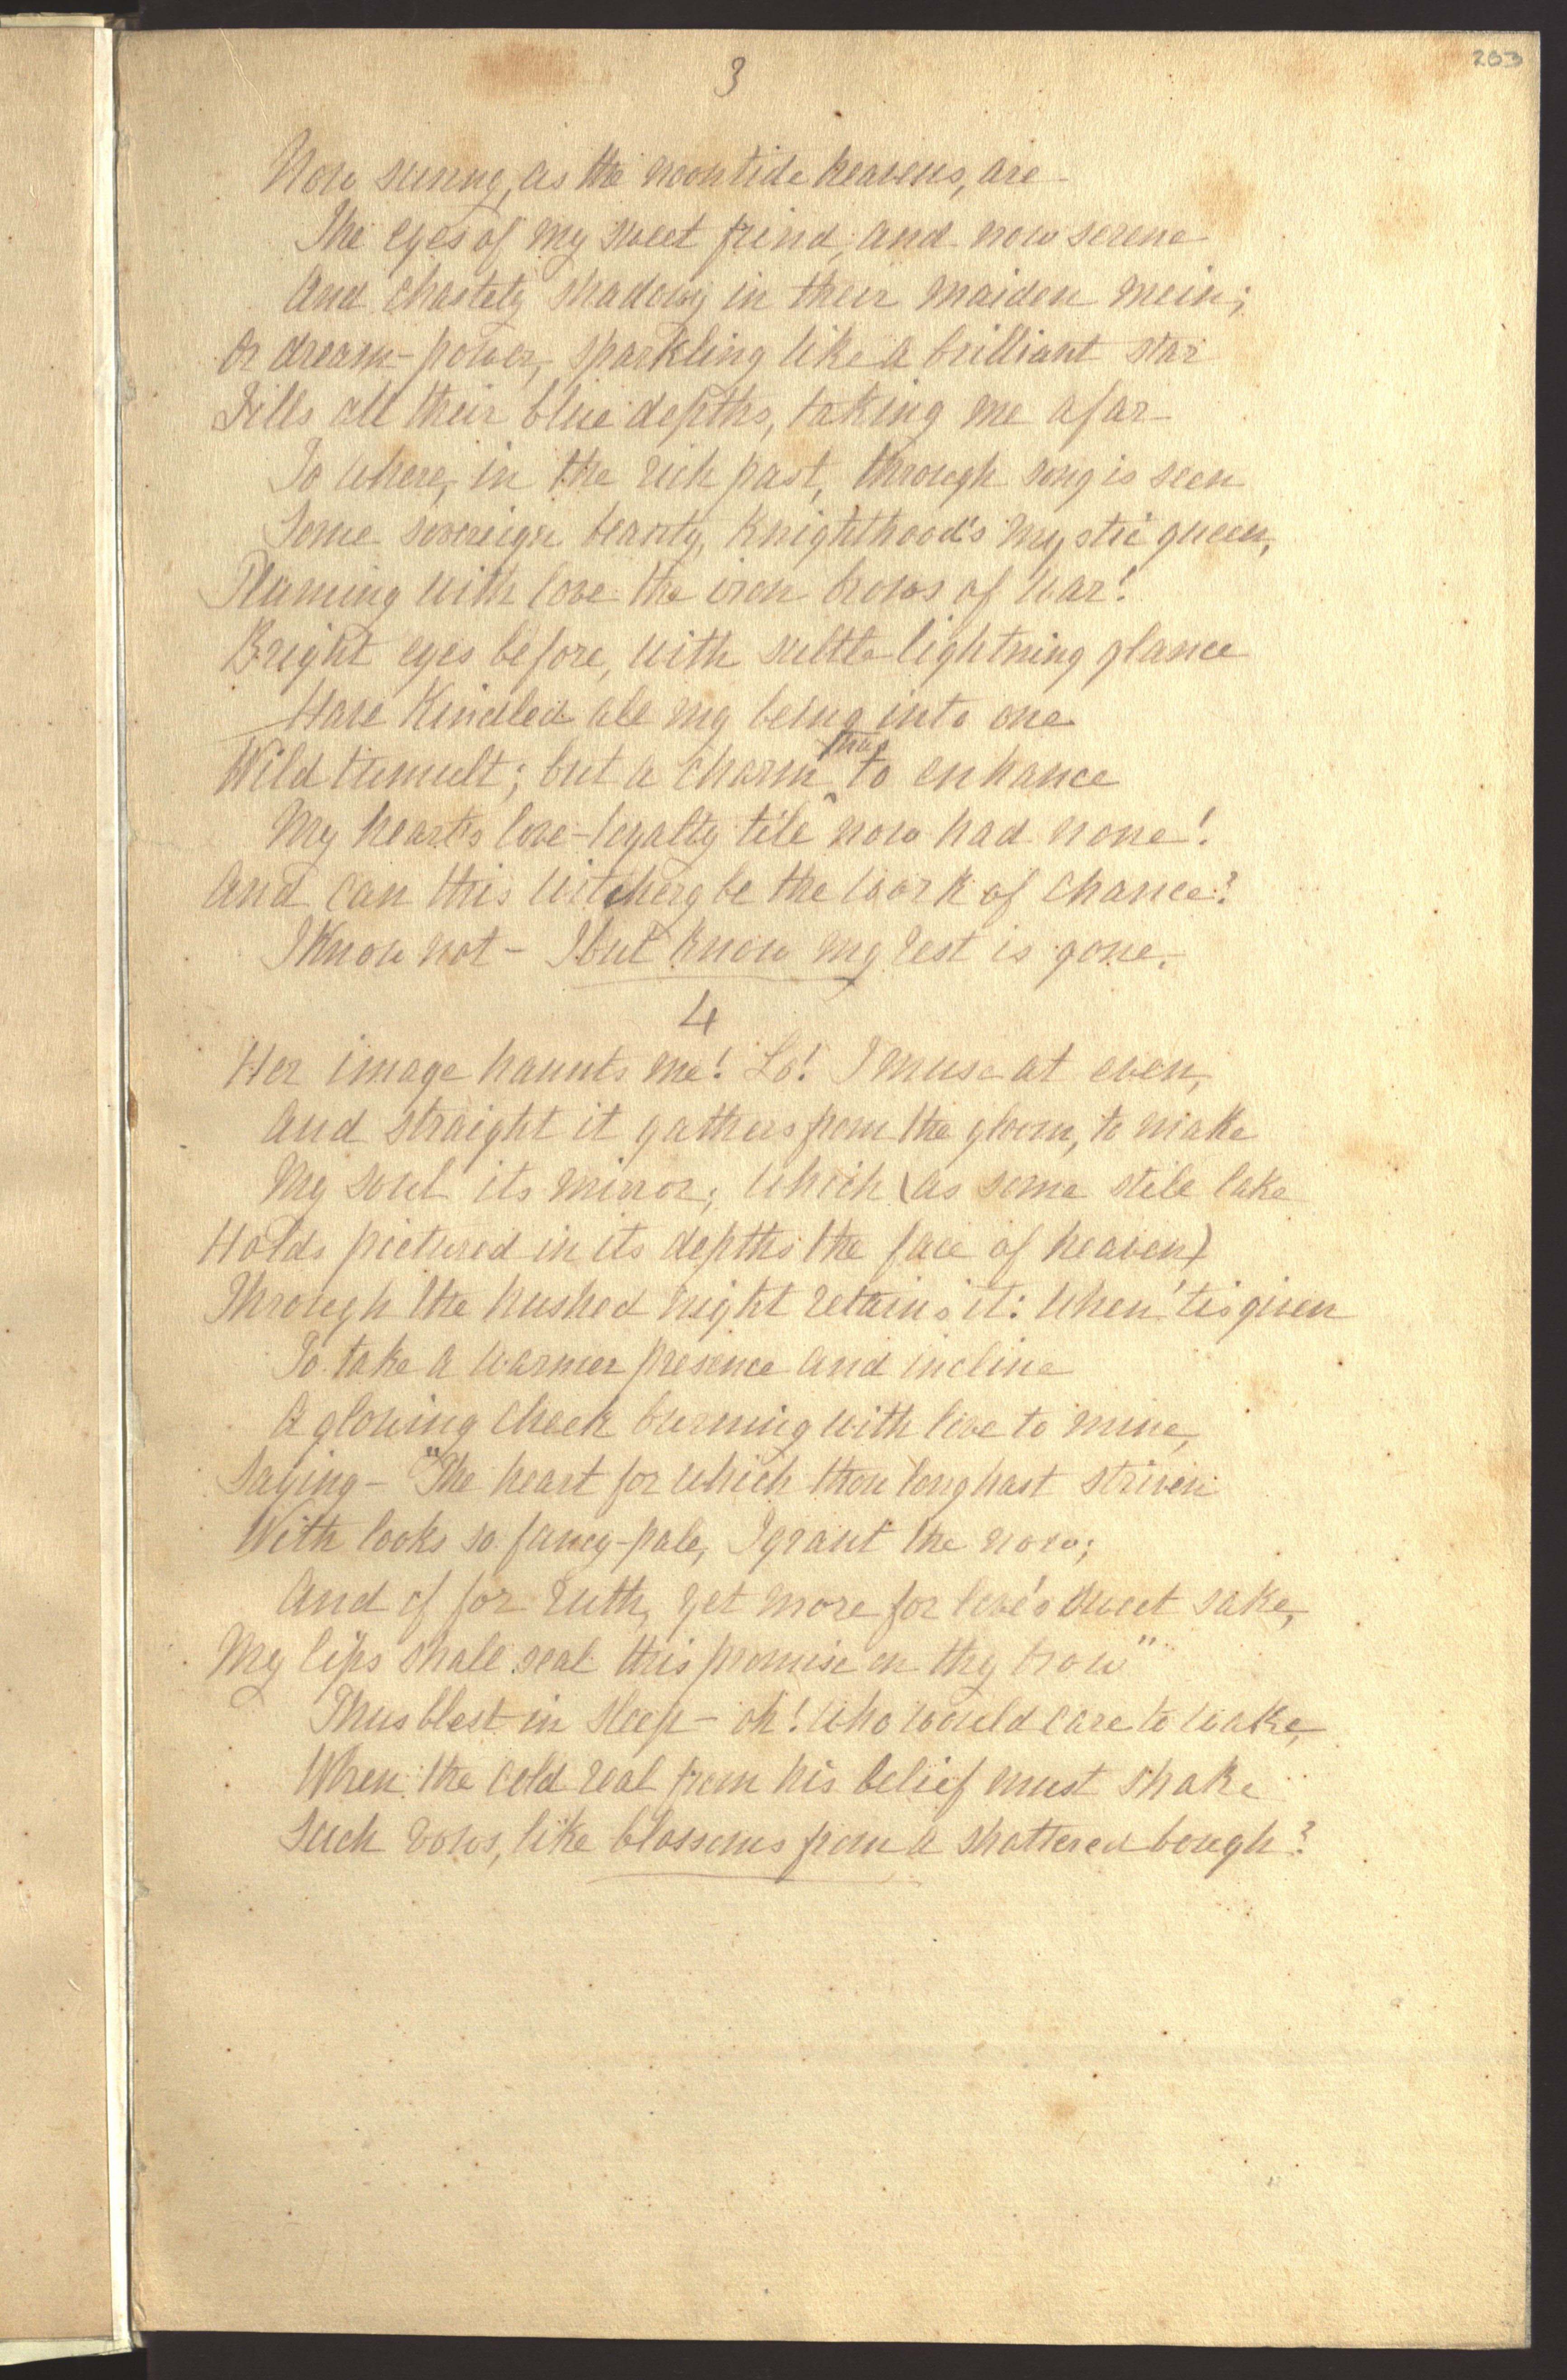 203
3
Now sunny, as the noontide heavens, are
The eyes of my sweet frind, and now serene
And chastely shadowy in their maiden mein;
Or dream-power, sparkling like a brilliant star
Fills all their blue depths, taking me afar
To where, in the rich past, through song is seen
Some sovereign beauty, knighthood's mystic queen,
Pluming with love the iron brows of War!
Bright eyes before, with suttle lightning glance
Have kindled all my being into one
Wild tumult; but a charm thus to enhance
My heart's love-loyalty till now had none!
And can this witchery be the work of chance?
I know not – I but know my rest is gone.
4
Her image haunts me! Lo! I muse at even,
And straight it gathers from the gloom, to make
My soul its mirror; which (as some still lake
Holds pictured in its depths the face of heaven)
Through the hushed night retains it: when 'tis given
To take a warmer presence and incline
A glowing cheek burning with love to mine,
Saying – "The heart for which thou long hast striven
With looks so fancy-pale, I grant the now;
And if for ruth, yet more for love's sweet sake,
My lips shall seal this promise on thy brow"
Thus blest in sleep – oh! who would care to wake,
When the cold real from his belief must shake
Such vows, like blossoms from a shattered bough?